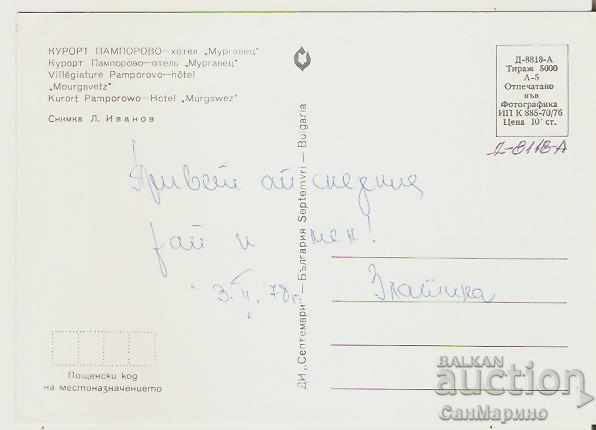 КУРОРТ ПАМПОРОВО—хотел „Мургавец"
Курорт Пампорово—отель „Мургавец"
Villégiature Pamporovo—hôtel
„Mourgavetz"
Kurort Pamporowo—Hotel „Murgswez"
Снимка Л. Иванов
ДИ „Септември — България Septemvri — Bulgaria
Д-8818-А
Тираж 5000
Л-5
Отпечатано
във
Фотографика
ИП К 885-70/76
Цена 10 ст.
Д-8118-А
Привет от
и мен!
3.II.78г.
Златина
Пощенски код
на местоназначението
BALKAN
auction
СанМарино